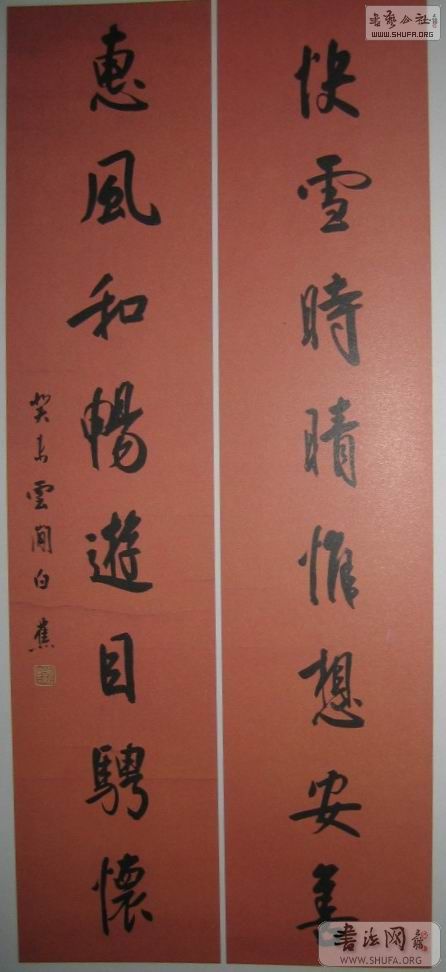 快雪時晴惟想安善
惠風和暢遊目騁懷
癸未雲間白蕉
書藝公社
WWW.SHUFA.ORG
書法网
WWW.SHUFA.ORG